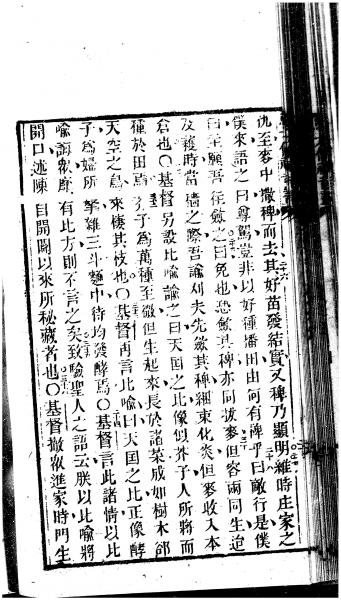 仇至麥中、撒稗而去、其好苗發結實、又稗乃顯明、維時庄家之
僕來語之曰、尊駕豈非以好種播田、由何有稗乎、曰敵行是、僕
曰、主願吾往斂之、曰免也、恐斂其稗、亦同拔麥、但容兩同生迨
及穫時、當穡之際、吾諭刈夫、先斂其稗、綑束化炎、但麥收入本
倉也○基督另設比喻諭之曰、天国之比像似芥子、人所將而
種於田焉、夫子為萬種至微、但生起來、長於諸菜、成如樹木、郤
天空之鳥、來棲其枝也○基督再言比喻曰、天国之比、正像酵
子為婦所拏雜三斗麵中、待均發酵焉○基督言此諸情以比
喻謂衆、靡有比方、則不言之矣、致驗聖人之語云、朕以比喻將
開口、述陳自開闢以來所秘藏者也○基督撤衆進家時、門生